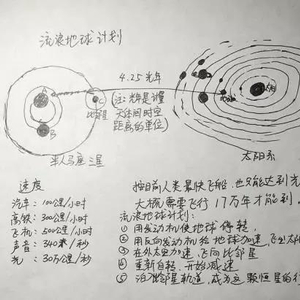 流浪地球计划
4.25光年
A
B
C
比邻星
(注:光年是计量
天体间时空
距离的单位)
太阳
半人马座三星
太阳系
速度
汽车:100公里/小时
高铁:300公里/小时
飞机:500公里/小时
声音:340米/秒
光:30万公里/秒
按目前人类最快飞船,也只能达到光
大概需要飞行17万年才能到。
流浪地球计划:
① 用发动机使地球停转,
② 用反向发动机给地球加速,飞出太阳
③ 在外太空加速,飞向比邻星
④ 重新自转,开始减速
⑤ 泊入比邻星轨道,成为这颗恒星的行